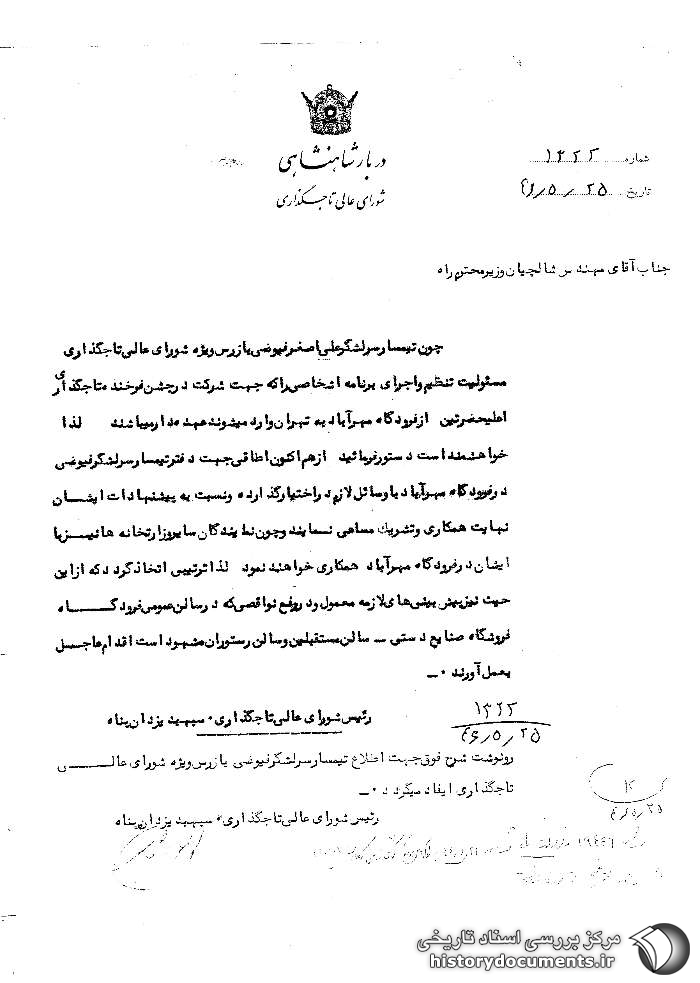 دربار شاهنشاهی
شورای عالی تاجگذاری
شماره ۱۳۲۲
تاریخ ۲۵/۵/۴۶
جناب آقای مهندس شالچیان وزیر محترم راه
چون تیمسار سرلشگر علی اصغر فیوضی بازرس ویژه شورای عالی تاجگذاری
مسئولیت تنظیم و اجرای برنامه اشخاصی را که جهت شرکت در جشن فرخنده تاجگذاری
اعلیحضرتین از فرودگاه مهرآباد به تهران وارد میشوند عهده دار میباشند لذا
خواهشمند است دستور فرمائید از هم اکنون اطاقی جهت دفتر تیمسار سرلشگر فیوضی
در فرودگاه مهرآباد با وسائل لازم در اختیار گذارده و نسبت به پیشنهادات ایشان
نهایت همکاری و تشریک مساعی نمایند و چون نمایندگان سایر وزارتخانه ها نیز با
ایشان در فرودگاه مهرآباد همکاری خواهند نمود لذا ترتیبی اتخاذ گردد که از این
حیث نیز پیش بینی های لازمه معمول و در رفع نواقصی که در سالن عمومی فرودگاه
فروشگاه صنایع دستی ـ سالن مستقبلین و سالن رستوران مشهود است اقدام عاجل
بعمل آورند ۰ـ
رئیس شورای عالی تاجگذاری ۰ سپهبد یزدان پناه
۱۳۲۲
۲۵/۵/۴۶
رونوشت شرح فوق جهت اطلاع تیمسار سرلشگر فیوضی بازرس ویژه شورای عالی
تاجگذاری ایفاد میگردد ۰ـ
رئیس شورای عالی تاجگذاری ۰ سپهبد یزدان پناه
مرکز بررسی اسناد تاریخی
historydocuments.ir